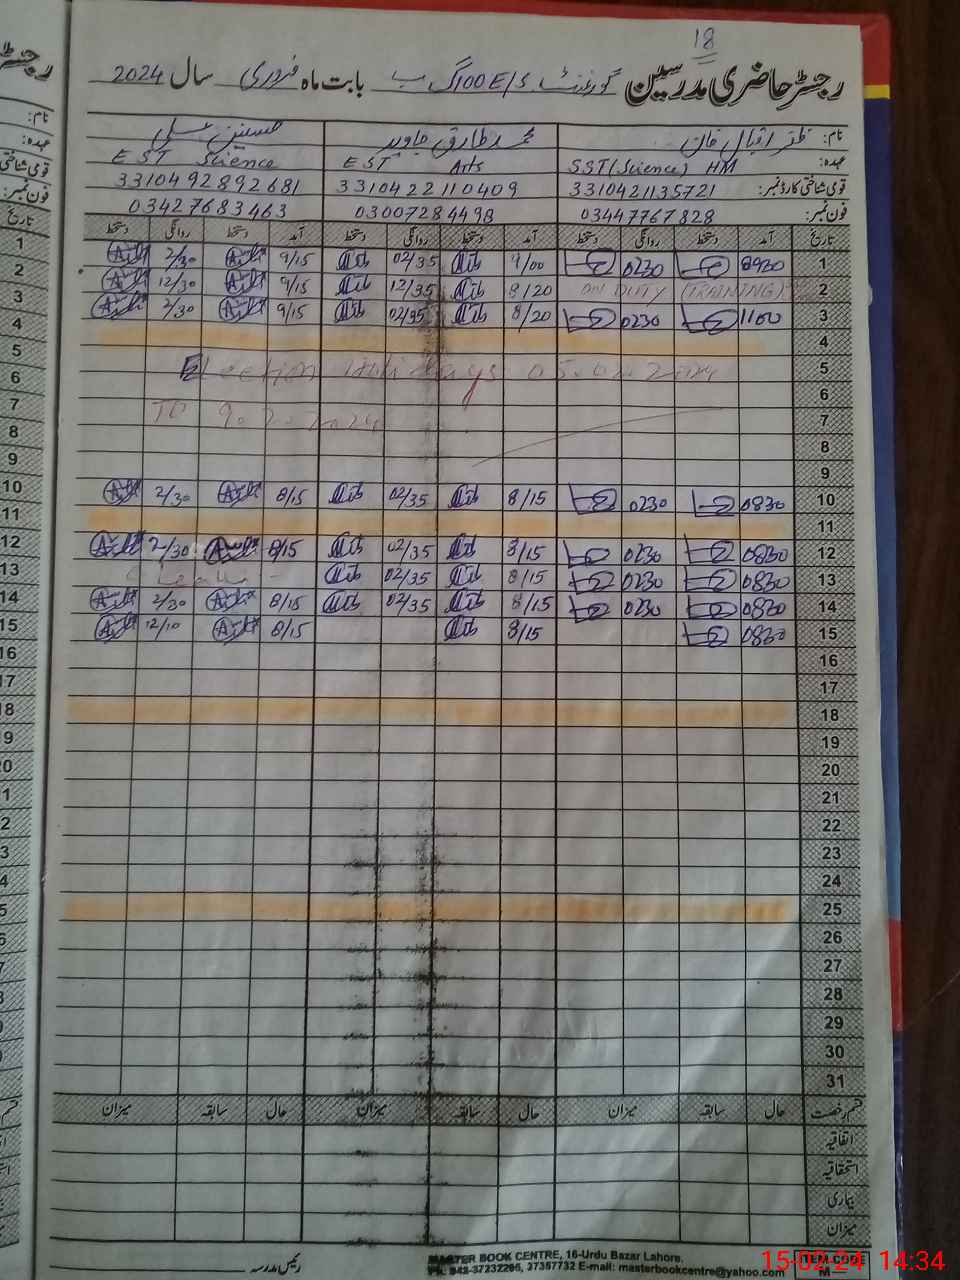 18
رجسٹر حاضری مدرسین گورنمنٹ E/S 100 گ ب بابت ماہ فروری سال 2024
نام: ظفر اقبال خان محمد طارق جاوید حسنین علی
عہدہ: SST (Science) HM EST Arts EST Science
قومی شناختی کارڈ نمبر: 3310421135721 3310422110409 3310492892681
فون نمبر: 03447767828 03007284498 03427683463
تاریخ آمد دستخط روانگی دستخط آمد دستخط روانگی دستخط آمد دستخط روانگی دستخط
1 0930 0230 9/00 02/35 9/15 2/30
2 ON DUTY (TRAINING) 8/20 12/35 9/15 12/30
3 1100 0230 8/20 02/35 9/15 2/30
4
5 Election Holidays 05.02.2024
6
7 TO 9.2.2024
8
9
10 0830 0230 8/15 02/35 8/15 2/30
11
12 0830 0230 8/15 02/35 8/15 2/30
13 0830 0230 8/15 02/35 Leave
14 0830 0230 8/15 02/35 8/15 2/30
15 0830 8/15 8/15 12/10
16
17
18
19
20
21
22
23
24
25
26
27
28
29
30
31
قسم رخصت حال سابقہ میزان حال سابقہ میزان حال سابقہ میزان
اتفاقیہ
استحقاقیہ
بیماری
میزان
رئیس مدرسہ
MASTER BOOK CENTRE, 16-Urdu Bazar Lahore.
Ph: 042-37232296, 37357732 E-mail: masterbookcentre@yahoo.com
ITEM CODE
M
15-02-24 14:34